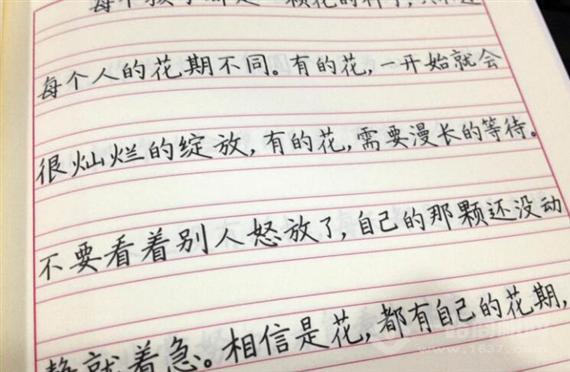 每个孩子都是一颗花的种子,只不过
每个人的花期不同。有的花,一开始就会
很灿烂的绽放,有的花,需要漫长的等待。
不要看着别人怒放了,自己的那颗还没动
静就着急。相信是花,都有自己的花期,